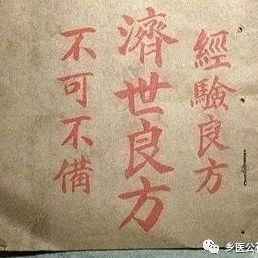 經驗良方
濟世良方
不可不備
乡医公